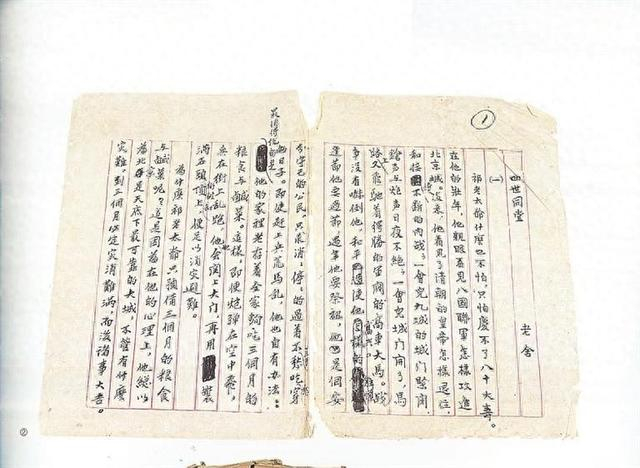 ①
四世同堂
老舍
(一)
祁老太爺什麼也不怕,只怕慶不了八十大壽。
在他的壯年,他親眼看見八國聯軍怎樣攻進
北京城。後來,他看見了清朝的皇帝怎樣退位,
和接續不斷的內戰;一會兒九城的城門緊閉,
鎗聲與炮聲日夜不絕;一會兒城門開了,馬
路上又飛馳着得勝的軍閥的高車大馬。戰
事沒有嚇倒他,和平使他
逢節他要過節,過年他要祭祖,他是個安
分守己的公民,只求消消停停的過着不愁吃穿
的日子。即使趕上兵荒馬亂,他也自有辦法:
最值得他的是
他的家裡老存着全家夠吃三個月的
糧食與鹹菜。這樣,即使炮彈在空中飛,
兵在街上亂跑,他會關上大門,再用裝
滿石頭的頂上,便足以消災避難。
為什麼祁老太爺只預備三個月的糧食
與鹹菜呢?這是因為在他的心理上,他總以
為北平是天底下最可靠的大城,不管有什麼
災難,到三個月必定災消難滿,而後諸事大吉。
②